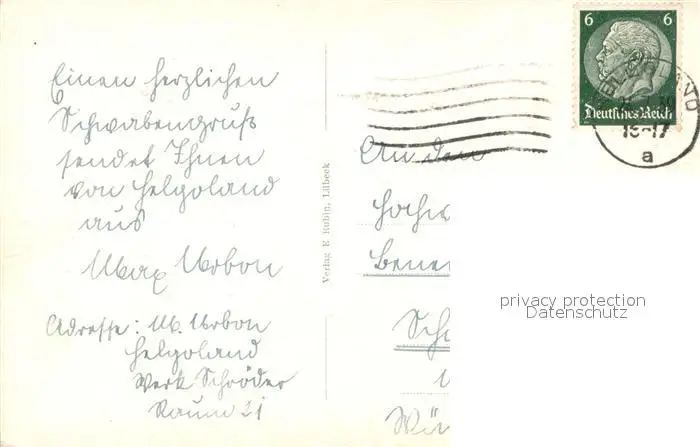 Einen herzlichen
Schwabengruß
sendet Ihnen
von Helgoland
aus
Max Urbon
Adresse: M. Urbon
Helgoland
Werk Schröder
Raum 21
Verlag E Rubin, Lübeck
6 6
Deutsches Reich
HELGOLAND
16-17
a
An den
Hochw
Bene
Sch
Wür
privacy protection
Datenschutz